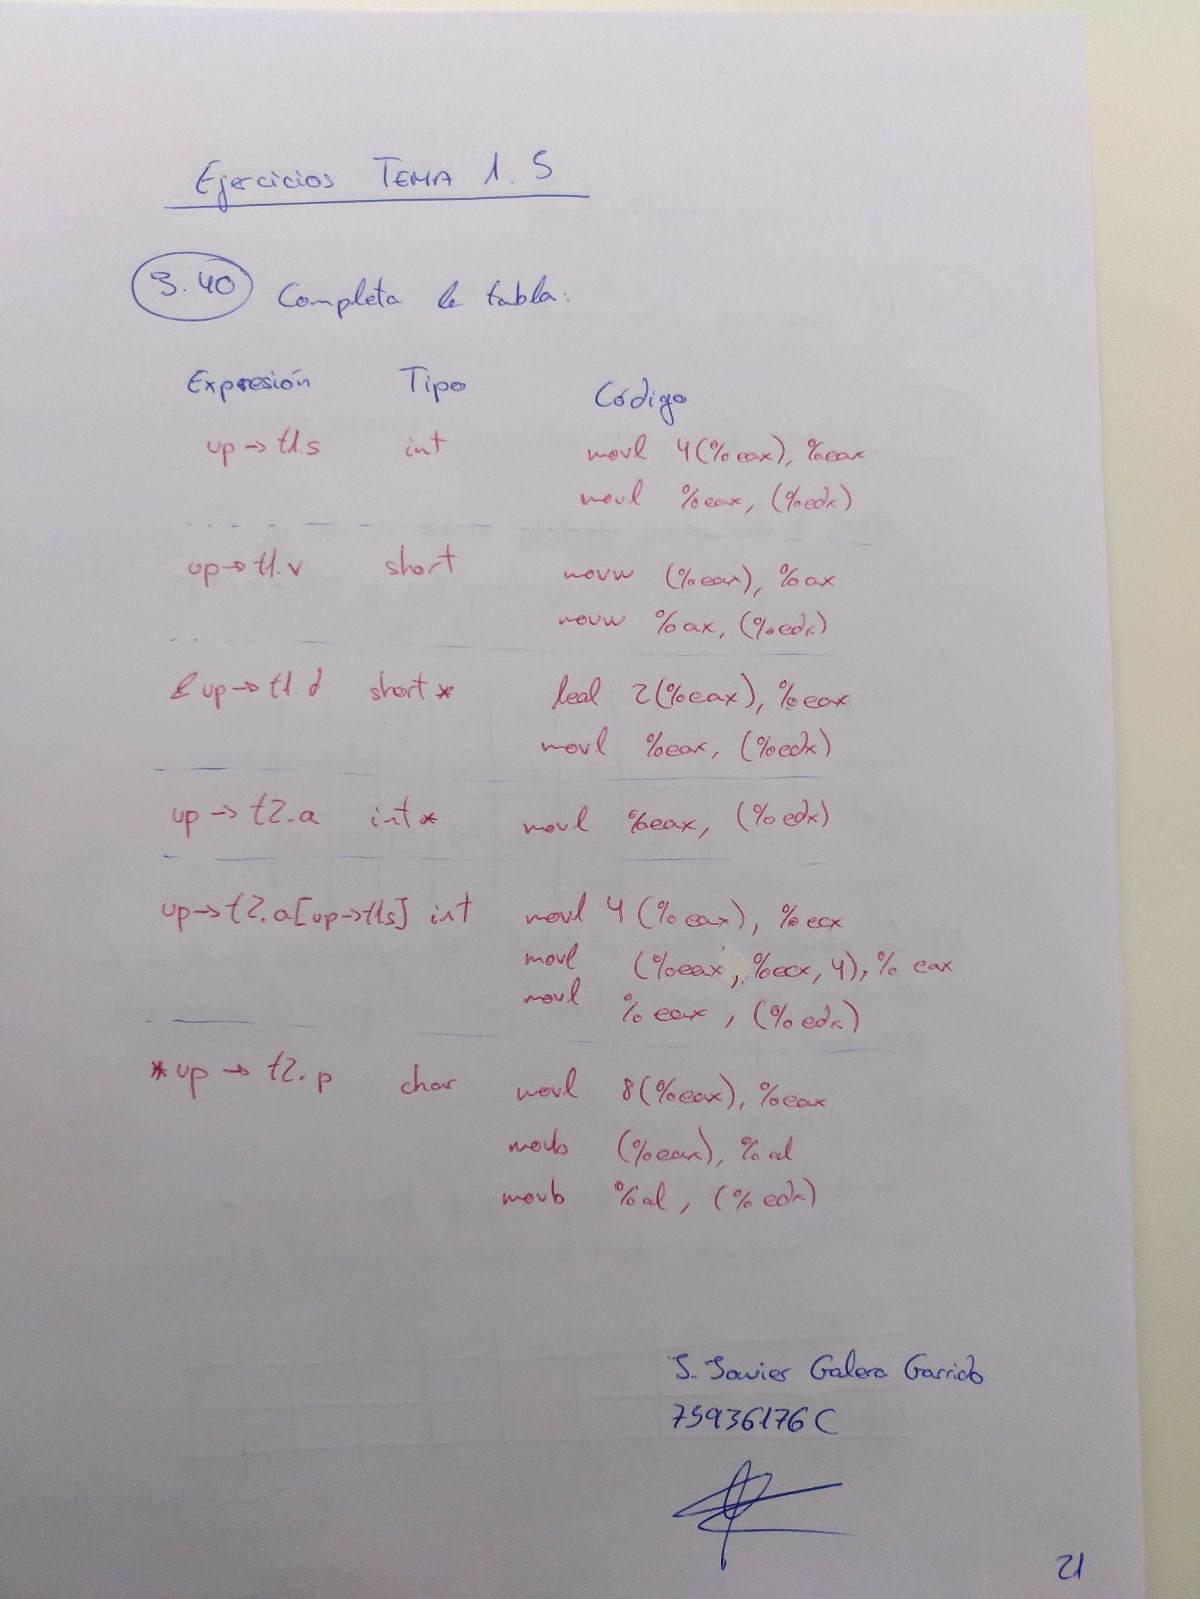 Ejercicios TEMA 1.5
3.40 Completa la tabla:
Expresión Tipo Código
up→t1.s int movl 4(%eax), %eax
movl %eax, (%edx)
up→t1.v short movw (%eax), %ax
movw %ax, (%edx)
& up→t1.d short* leal 2(%eax), %eax
movl %eax, (%edx)
up→t2.a int* movl %eax, (%edx)
up→t2.a[up→t1s] int movl 4(%eax), %ecx
movl (%eax, %ecx, 4), %eax
movl %eax, (%edx)
*up→t2.p char movl 8(%eax), %eax
movb (%eax), %al
movb %al, (%edx)
J. Javier Galera Garrido
75936176C
21